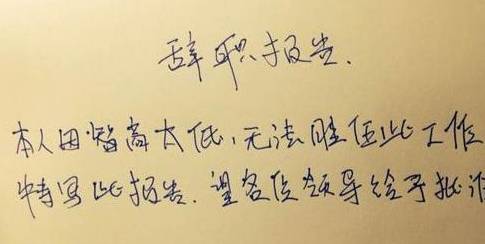 辞职报告.
本人因智商太低，无法胜任此工作
特写此报告.望各位领导给予批准